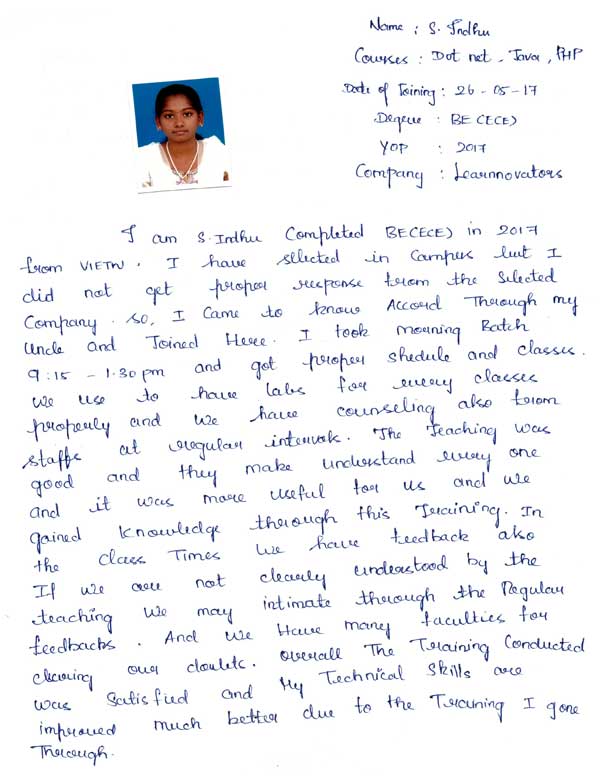 Name : S. Indhu
Courses : Dot net, Java, PHP
Date of Joining : 26-05-17
Degree : BE (ECE)
YOP : 2017
Company : Learnnovators
I am S. Indhu Completed BE(ECE) in 2017
from VIETW. I have sllected in Campus but I
did not get proper response from the Selected
Company. So, I Came to know Accord Through my
Uncle and Joined Here. I took morning Batch
9:15 - 1.30 pm and got proper shedule and classes.
We use to have labs for every classes
properly and we have counseling also from
staffs at regular intervals. The Teaching was
good and they make understand every one
and it was more useful for us and we
gained knowledge through this Training. In
the class Times we have feedback also
If we are not clearly understood by the
teaching we may intimate through the Regular
feedbacks. And we Have many faculties for
clearing our doubts. Overall The Training Conducted
was Satisfied and My Technical Skills are
improved much better due to the Training I gone
Through.